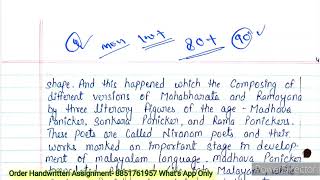 100+
80+
90+
shape. And this happened which the Composing of
different versions of Mahabharata and Ramayana
by three literary figures of the age - Madhava
Panicker, Sankara Panicker, and Rama Panickers.
These poets are called Niranam poets and their
works marked an important stage in develop
ment of malayalam language. Madhava Panicker
Malayalam
Order Handwritten Assignment- 8851761957 What's App Only